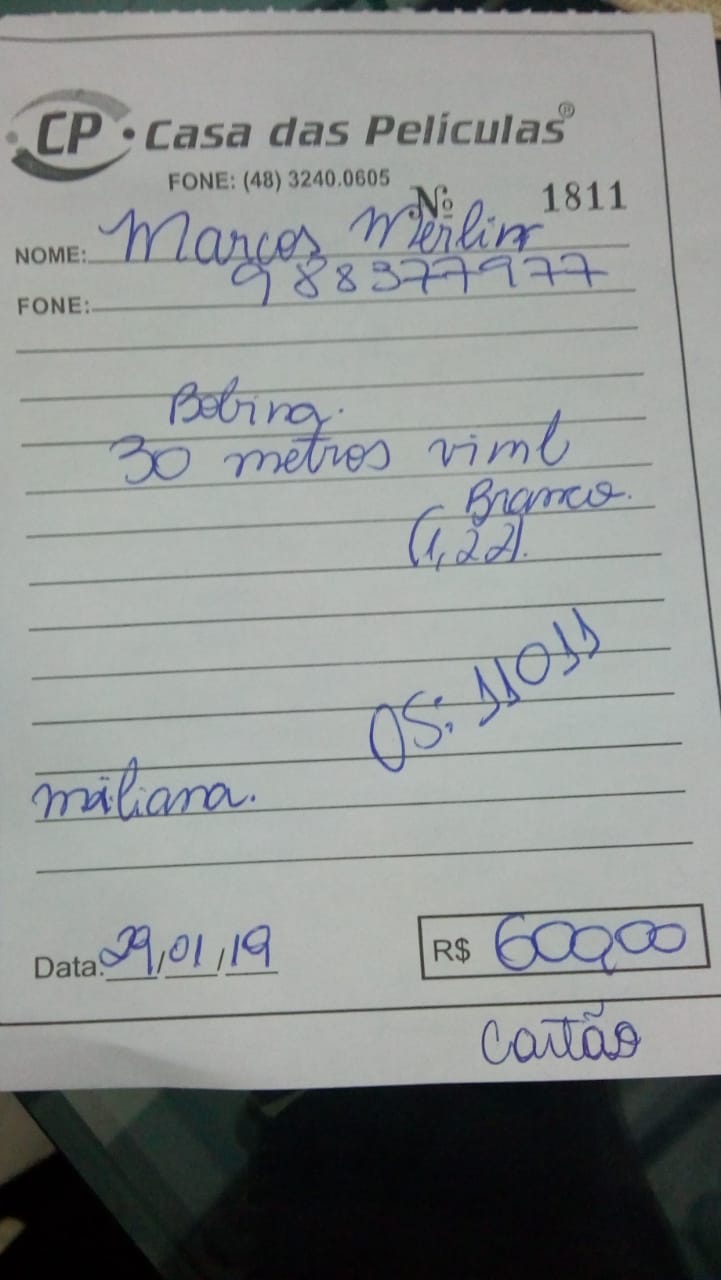 CP · Casa das Películas®
FONE: (48) 3240.0605
Nº 1811
NOME: Marcos Merlin
988377977
FONE:
Bobina.
30 metros vinil
Branco.
(1,22).
OS: 11011
Data: 29/01/19
R$ 600,00
Cartão